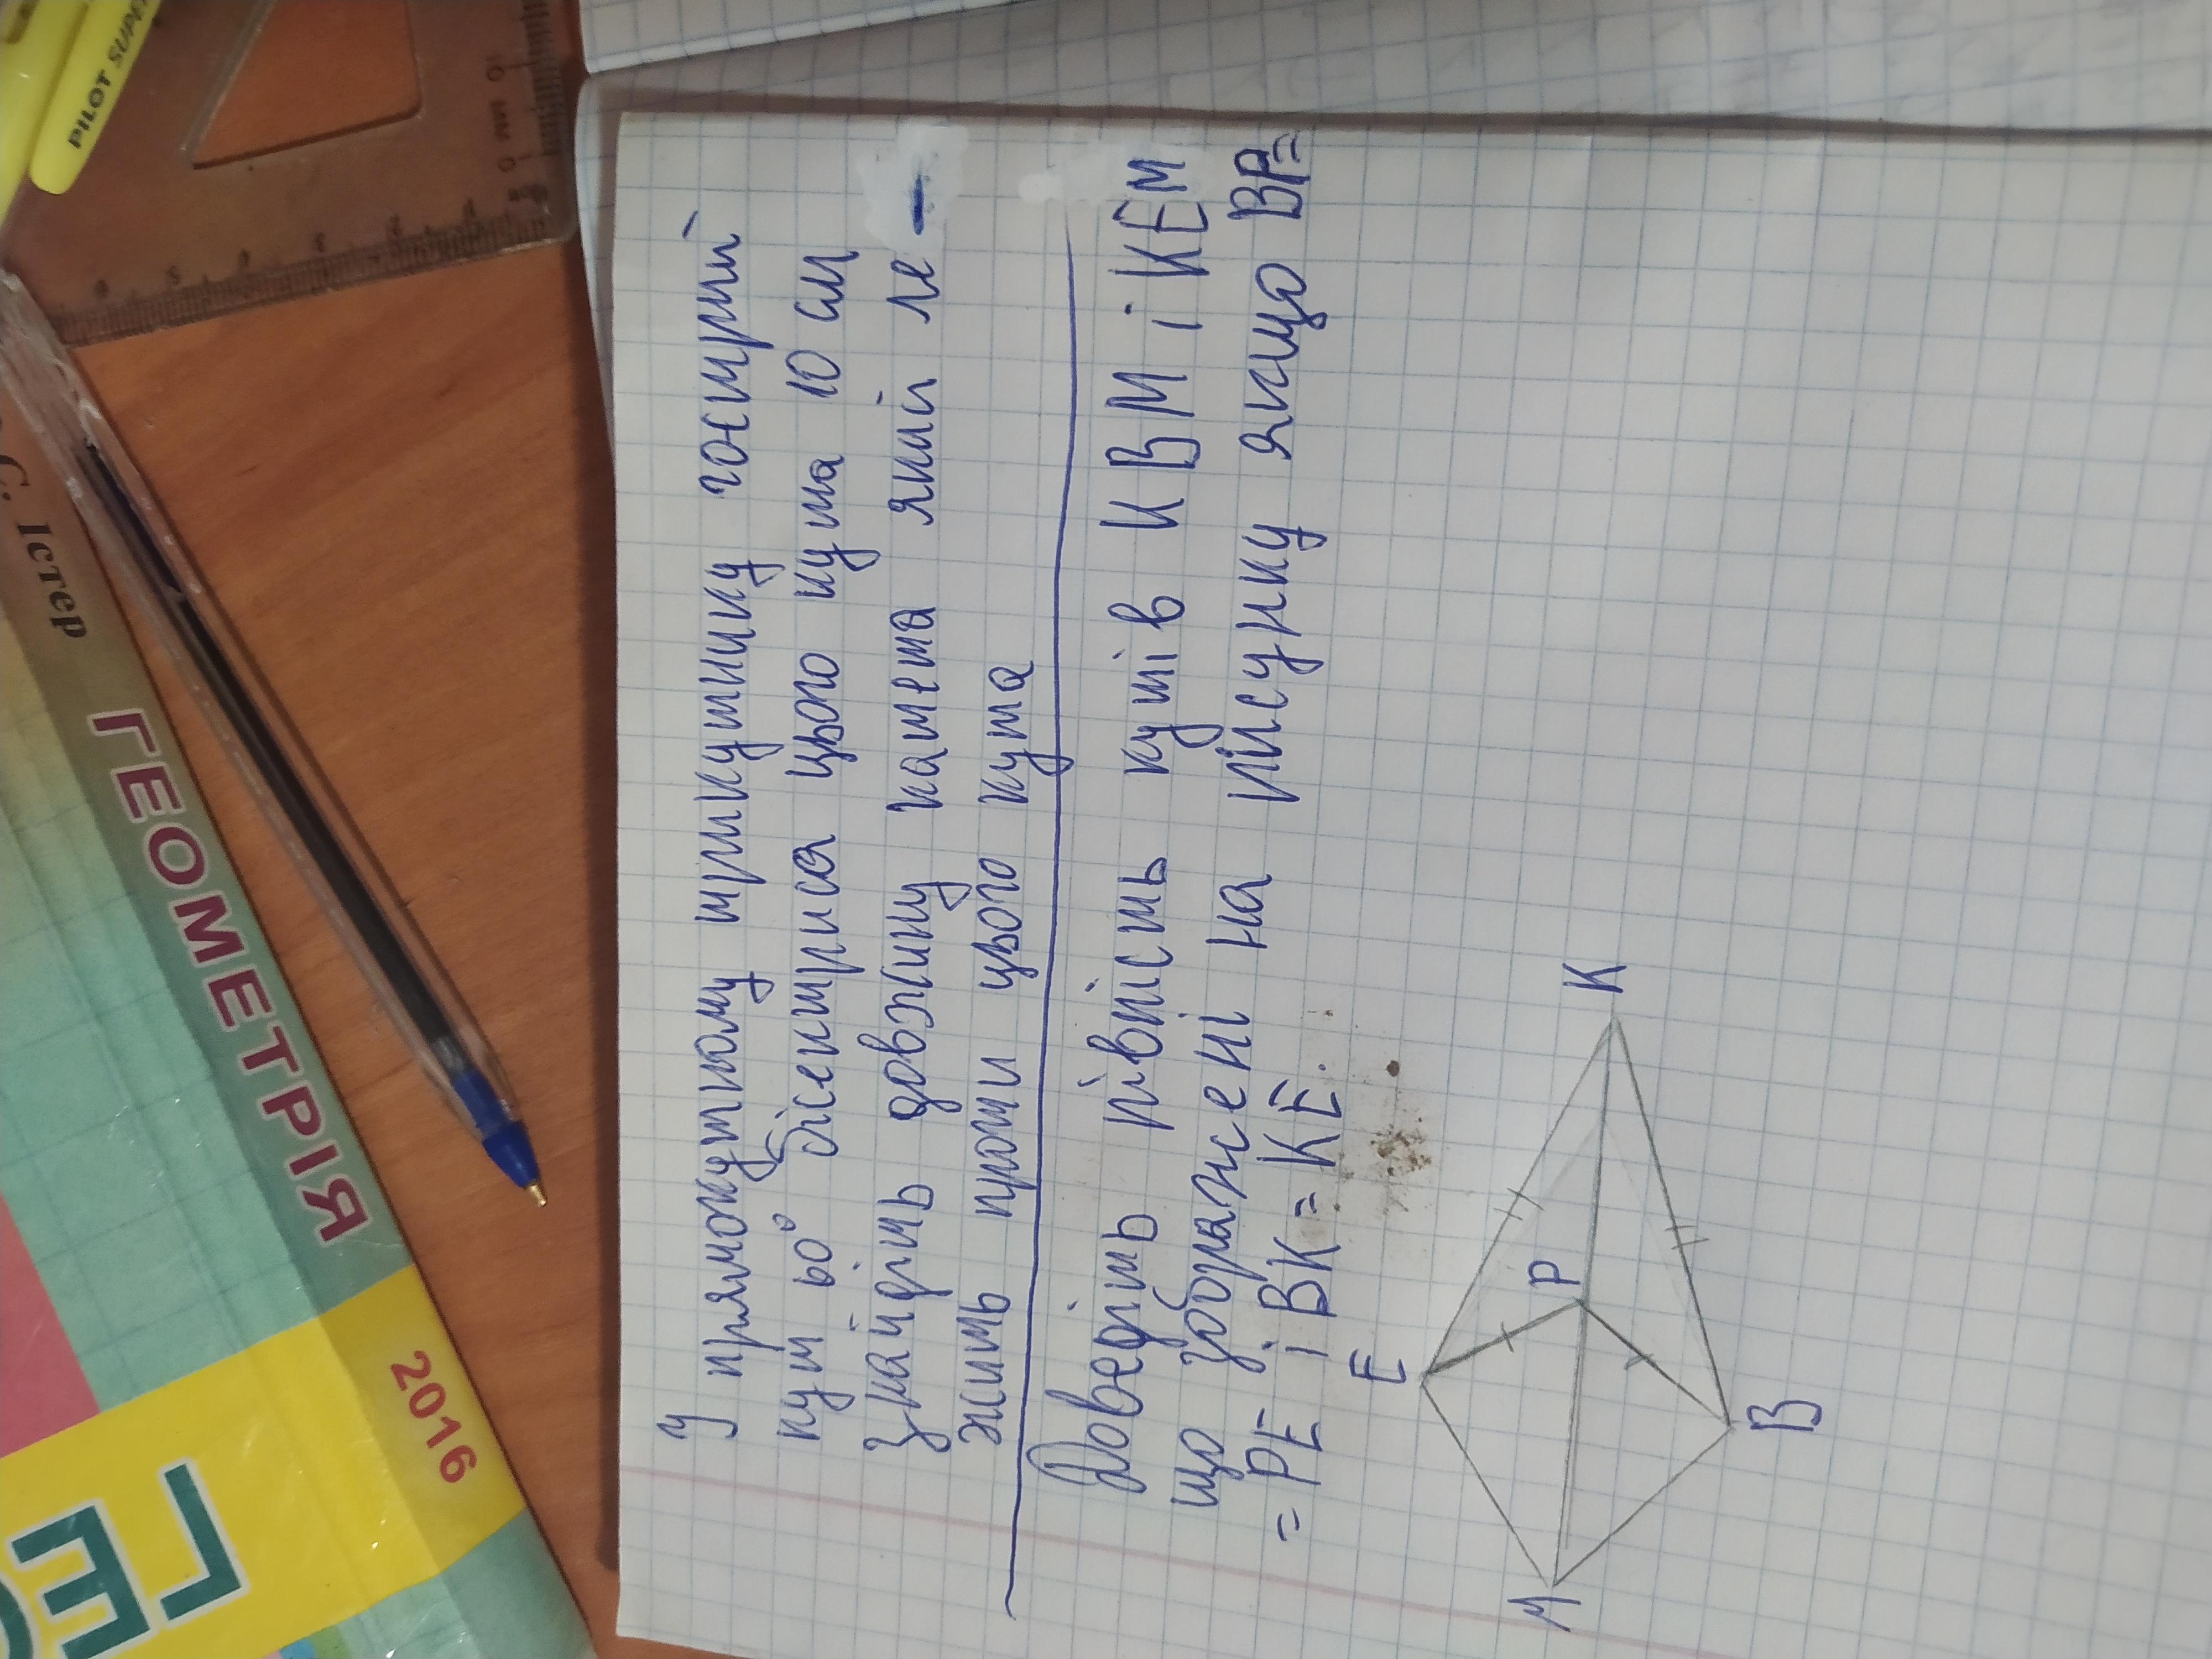 У прямокутному трикутнику гострий
кут 60° бісектриса цього кута 10 см
знайдіть довжину катета який ле-
жить проти цього кута
Доведіть рівність кутів КВМ і КЕМ
що зображені на рисунку якщо ВР=
= РЕ і ВК = КЕ.
Е
Р
К
М
В
С. Істер
ГЕОМЕТРІЯ
2016
PILOT SUPER
0 мм 10